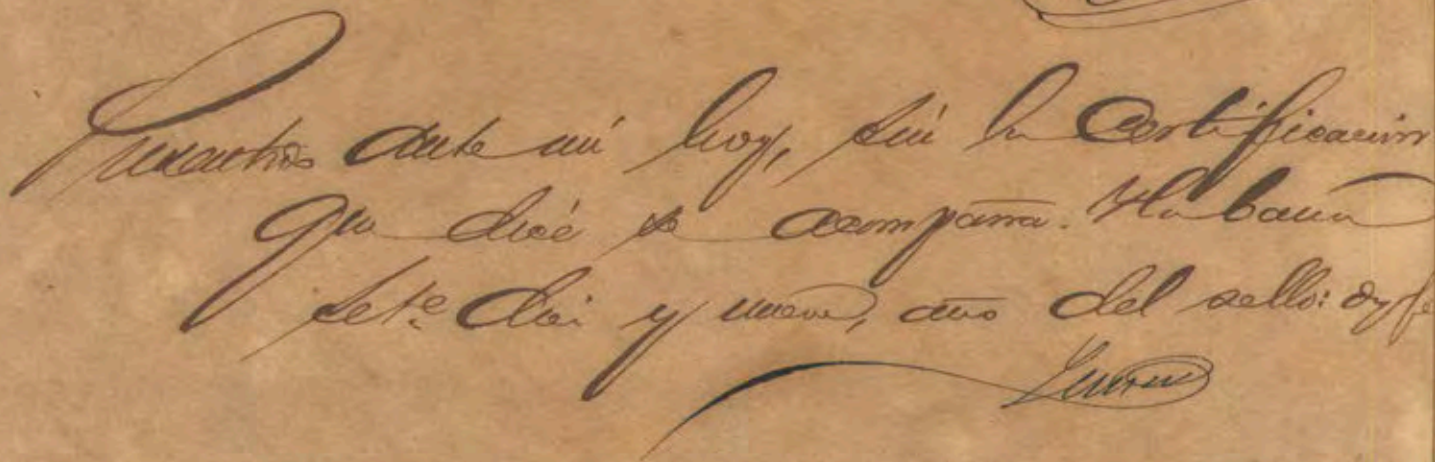 Presentado ante mi hoy, sin la Certificacion
que dice se acompaña. Habana
Set.e diez y nueve, año del sello: doy fe